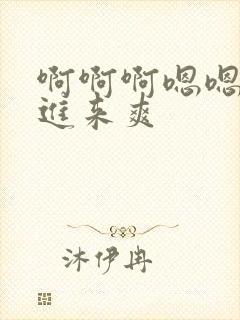 啊啊啊嗯嗯
進来爽
沐伊冉